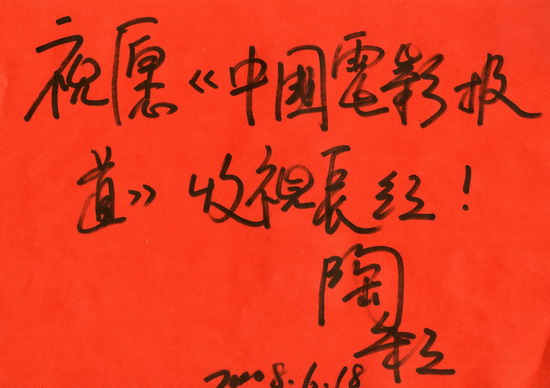 祝愿《中國電影报
道》收視長红！
陶虹
2008.6.18